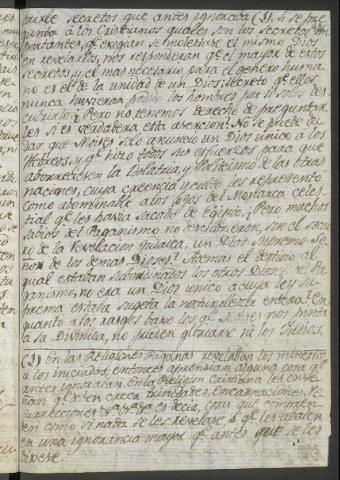 secretos que antes ignoraba (3). Si se pre
gunta à los Cristianos quales son los secretos im
portantes, qe exigian se molestase el mismo Dios
en revelarlos, nos responderan qe el mayor de estos
secretos, y el mas necesario para el genero huma
no es el de la unidad de un Dios, secreto qe ellos
nunca huvieran podido los hombres por si solos des
cubrirlo. ¿Pero no tenemos derecho de preguntar
les si es verdadera esta asercion? No se puede du
dar que Moises solo anunció un Dios unico a los
Hebreos, y qe hizo todos sus esfuerzos para que
aborreciesen la Idolatria, y Politeismo de las otras
naciones, cuya creencia y culto les represento
como abominable a los ojos del Monarca celes
tial qe les havia sacado de Egipto. ¿Pero muchos
sabios del Paganismo no descubrieron, sin el socor
ro de la revelacion judaica, un Dios supremo Se
ñor de los demas Dioses? Ademas el destino al
qual estaban subordinados los otros Dioses del Pa
ganismo, no era un Dios unico a cuya ley su
prema estaba sugeta la naturaleza entera? En
quanto a los rasgos baxo los qe Moises nos pinta
a su Divinidad, no pueden gloriarse ni los Judios,
(3) En las Religiones Paganas revelaban los misterios
a los iniciados; entonces aprendian alguna cosa qe
antes ignoraban. En la Religion Cristiana les ense
ñan qe deven creer trinidades, encarnaciones, Re
surrecciones es decir, cosas que comprenden
en como si nada se les revelase, o qe les abaten
en una ignorancia mayor qe antes que se les
dixese.